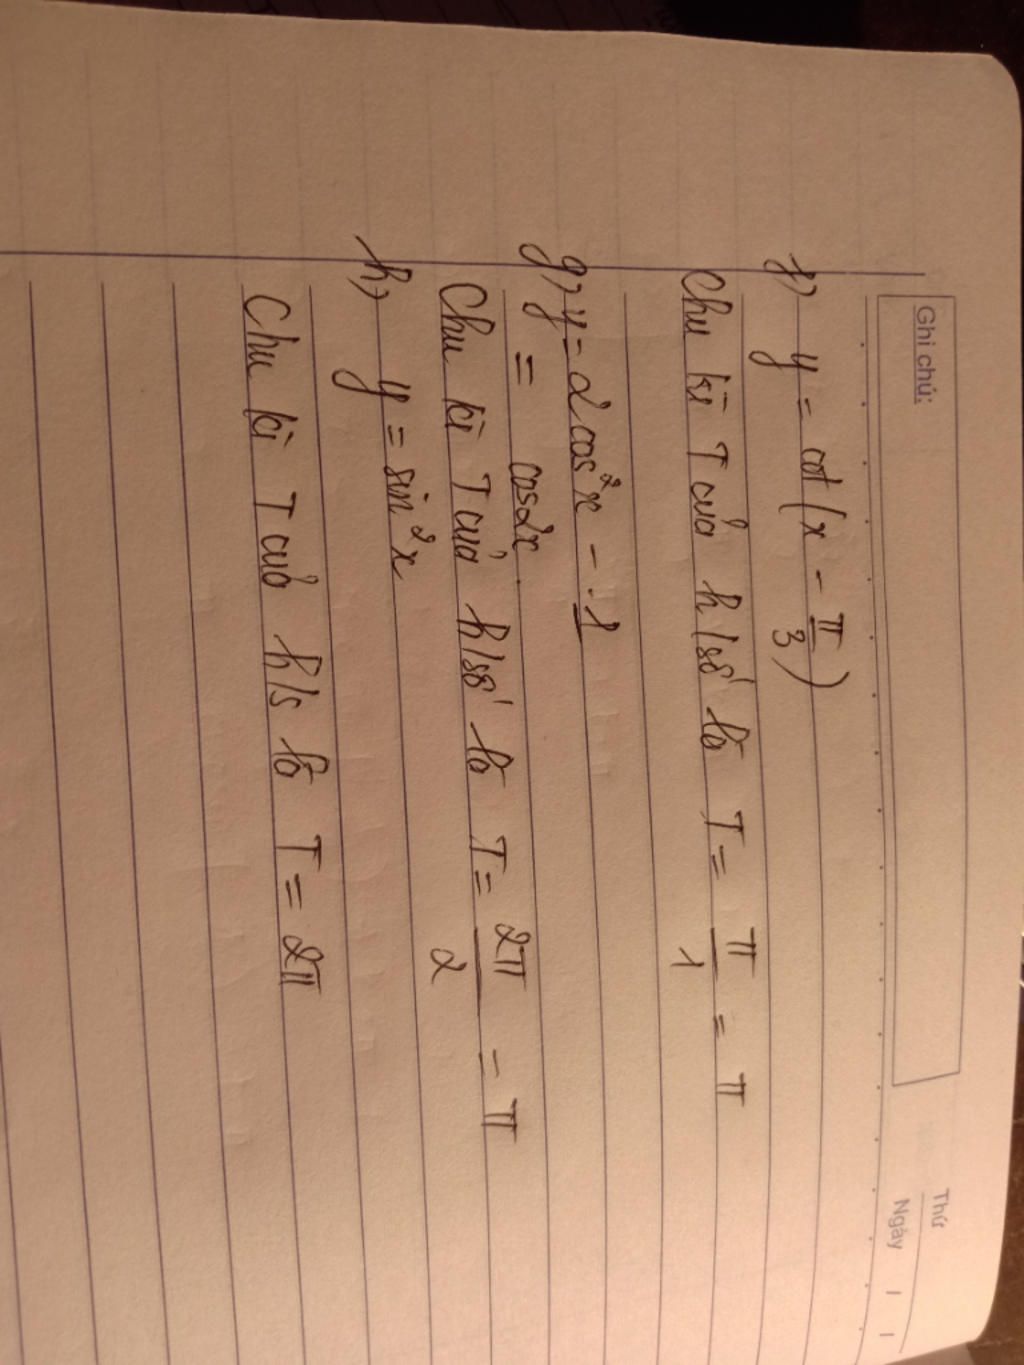 Ghi chú:
Thứ
Ngày / /
f) y = cot(x - π/3)
Chu kì T của h/số là T = π/1 = π
g) y = 2cos²x - 1
= cos2x.
Chu kì T của h/số là T = 2π/2 = π
h) y = sin²x
Chu kì T của h/s là T = 2π